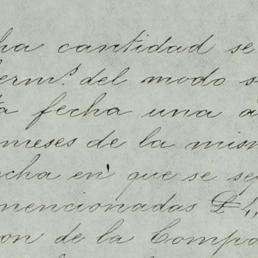 ha cantidad se
erm.s del modo s
a fecha una a
meses de la mism
cha en que se se
mencionadas £4,
on de la Compa